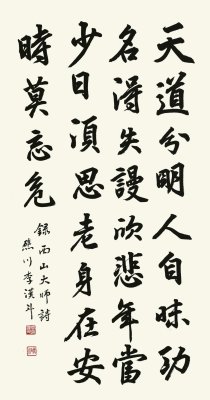 天道分明人自昧功
名得失謾欣悲年當
少日須思老身在安
時莫忘危
錄西山大師詩
川李漢斗